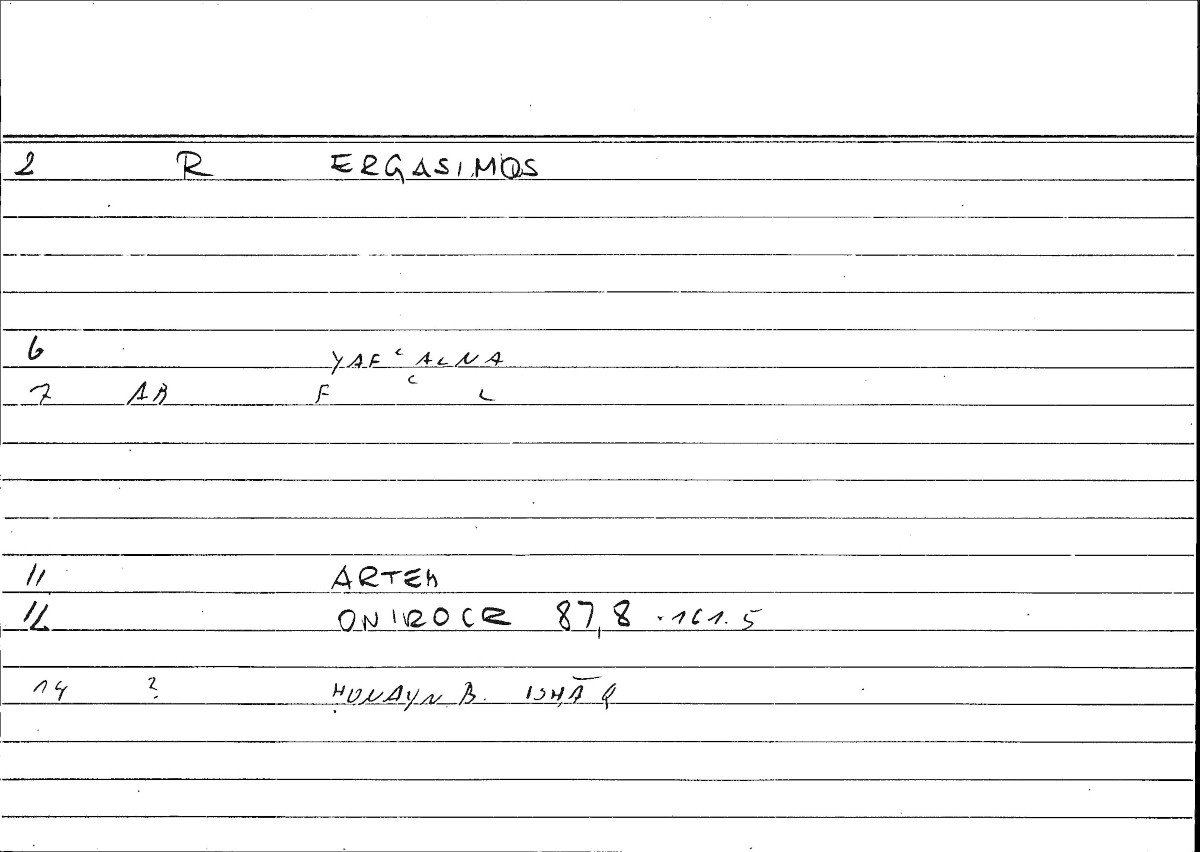 2 R ERGASIMOS
6 YAFʿALNA
7 AB F ʿ L
11 ARTEM
12 ONIROCR 87,8 · 161.5
14 ? ḤUNAYN B. ISḤĀQ